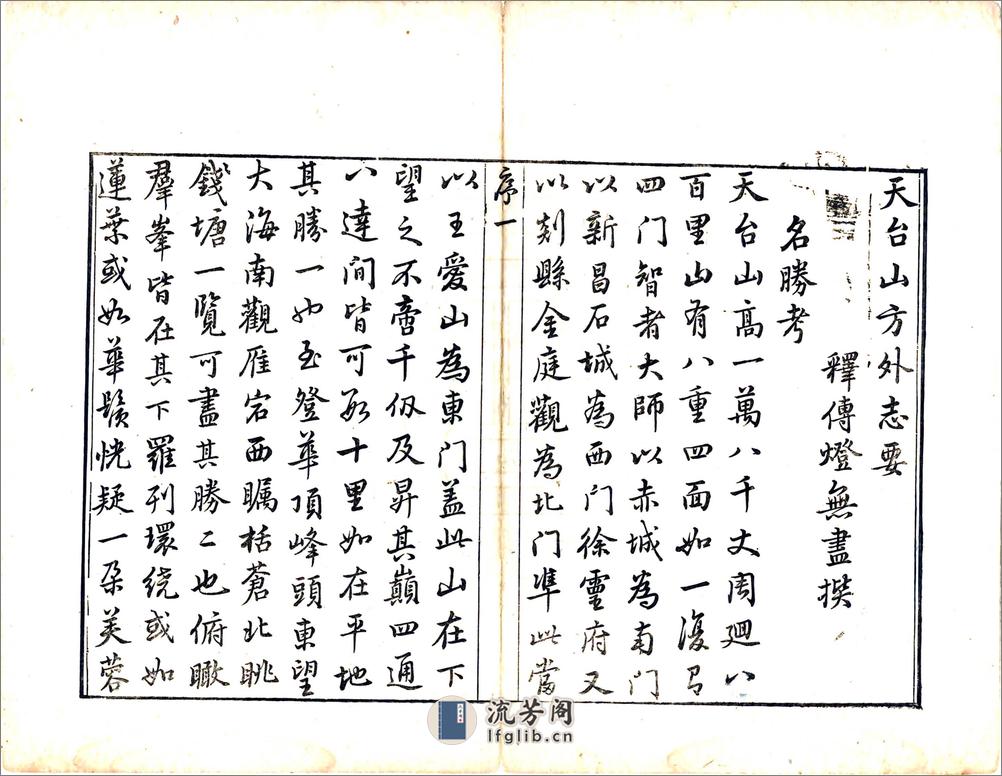 天台山方外志要
釋傳燈無盡撰
名勝考
天台山高一萬八千丈周廻八
百里山有八重四面如一復有
四門智者大師以赤城為南門
以新昌石城為西門徐靈府又
以剡縣金庭觀為北門準此當
序一
以王愛山為東門盖此山在下
望之不啻千仭及昇其巔四通
八達間皆可數十里如在平地
其勝一也至登華頂峰頭東望
大海南觀雁宕西矚栝蒼北眺
錢塘一覽可盡其勝二也俯瞰
羣峯皆在其下羅列環繞或如
蓮葉或如華鬚恍疑一朶芙蓉
流芳阁
lfglib.cn